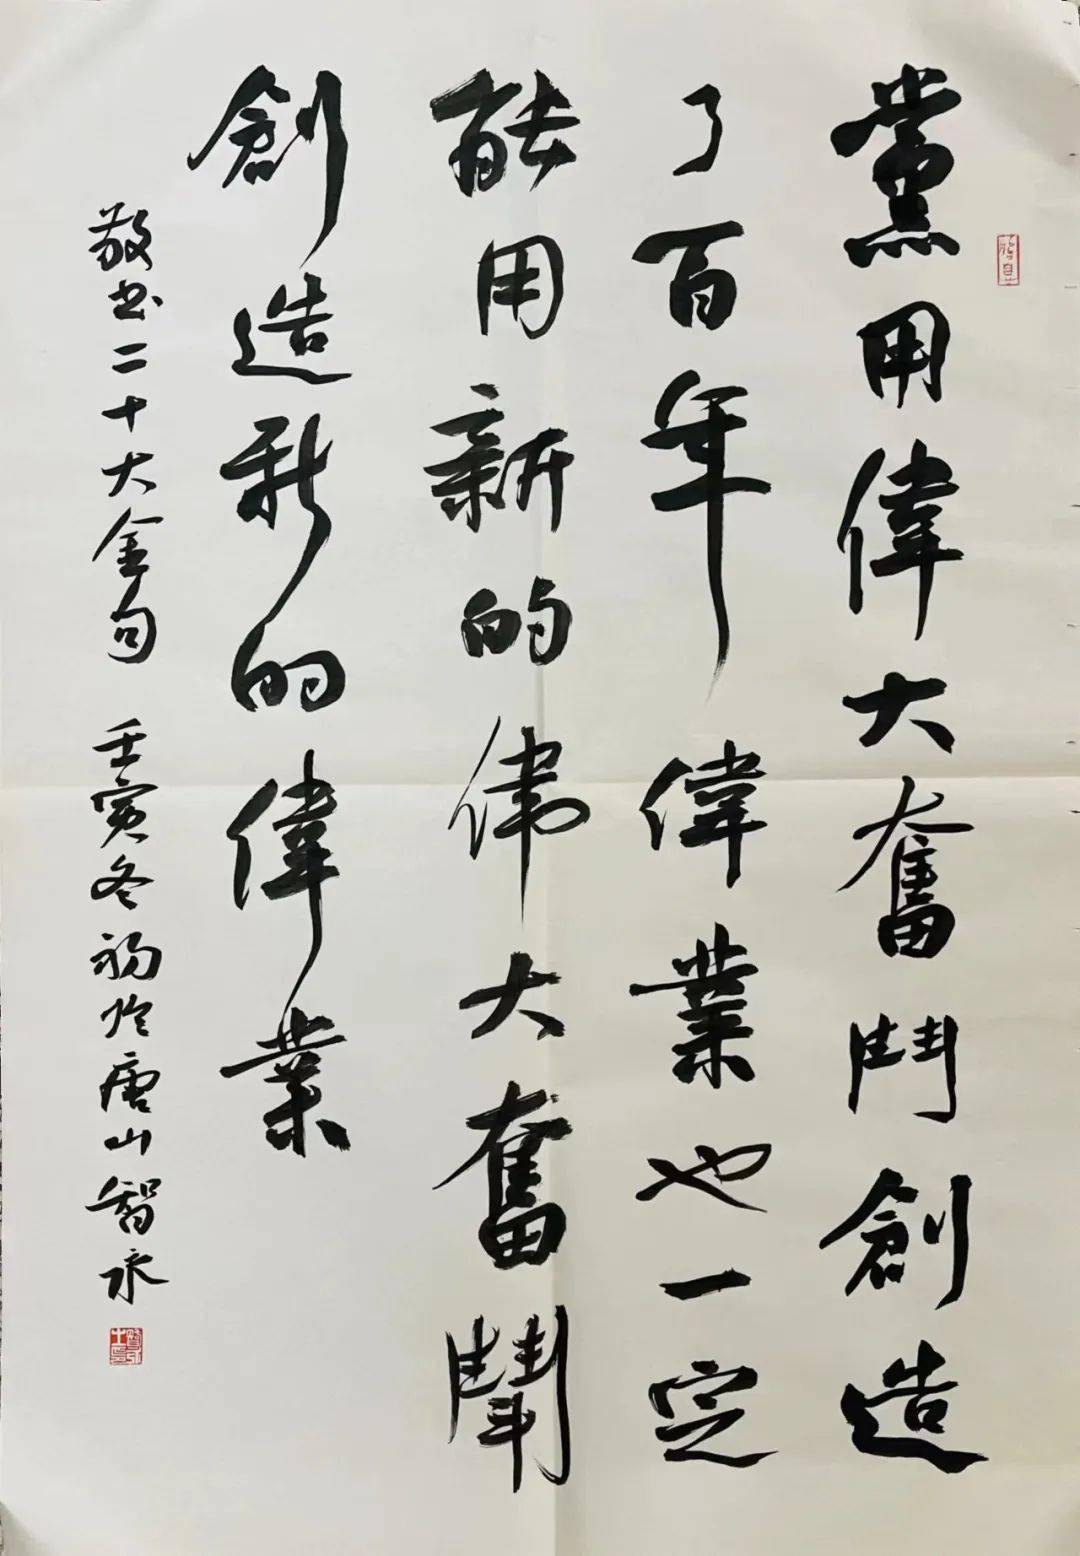 黨用偉大奮鬥創造
了百年偉業也一定
能用新的伟大奮鬥
創造新的偉業
敬书二十大金句 壬寅冬初於唐山智永